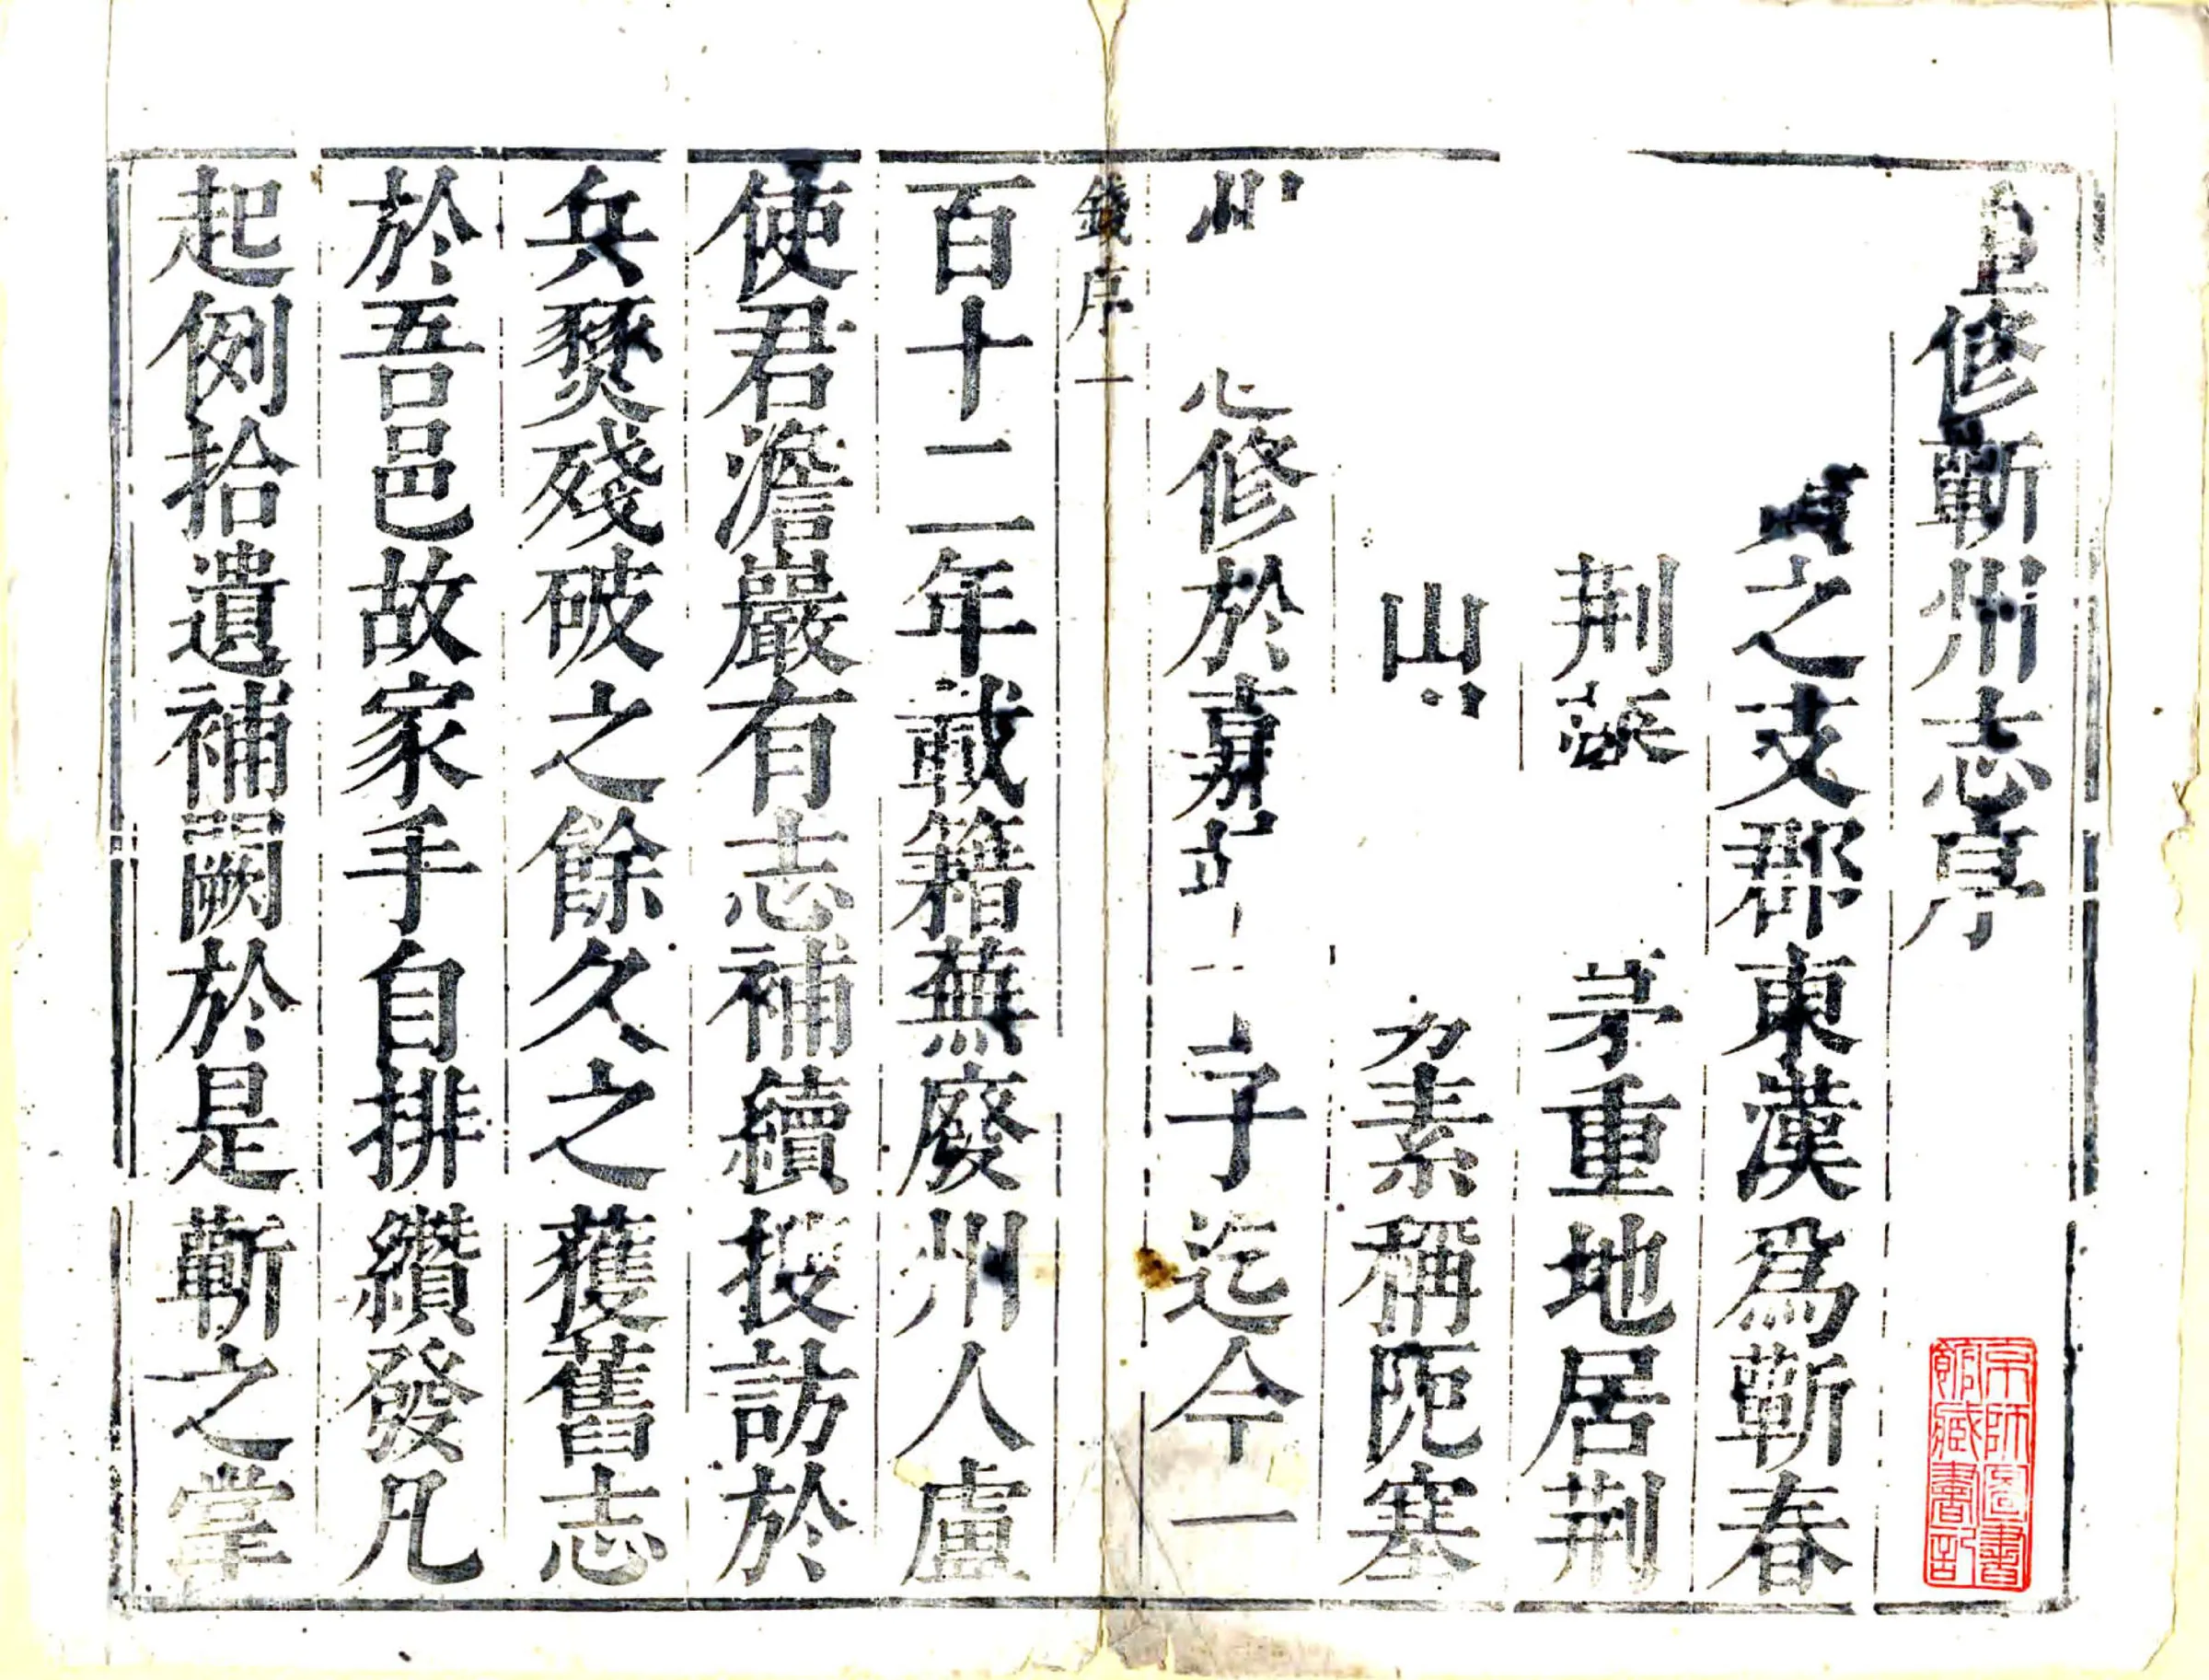 重修蘄州志序
之支郡東漢爲蘄春
荆 茅重地居荆
山 素稱阨塞
修於嘉 迄今一
錢序 一
百十二年載籍蕪廢州人盧
使君澹巖有志補續搜訪於
兵燹殘破之餘久之獲舊志
於吾邑故家手自排纘發凡
起例拾遺補闕於是蘄之掌
京師圖書
館藏書記